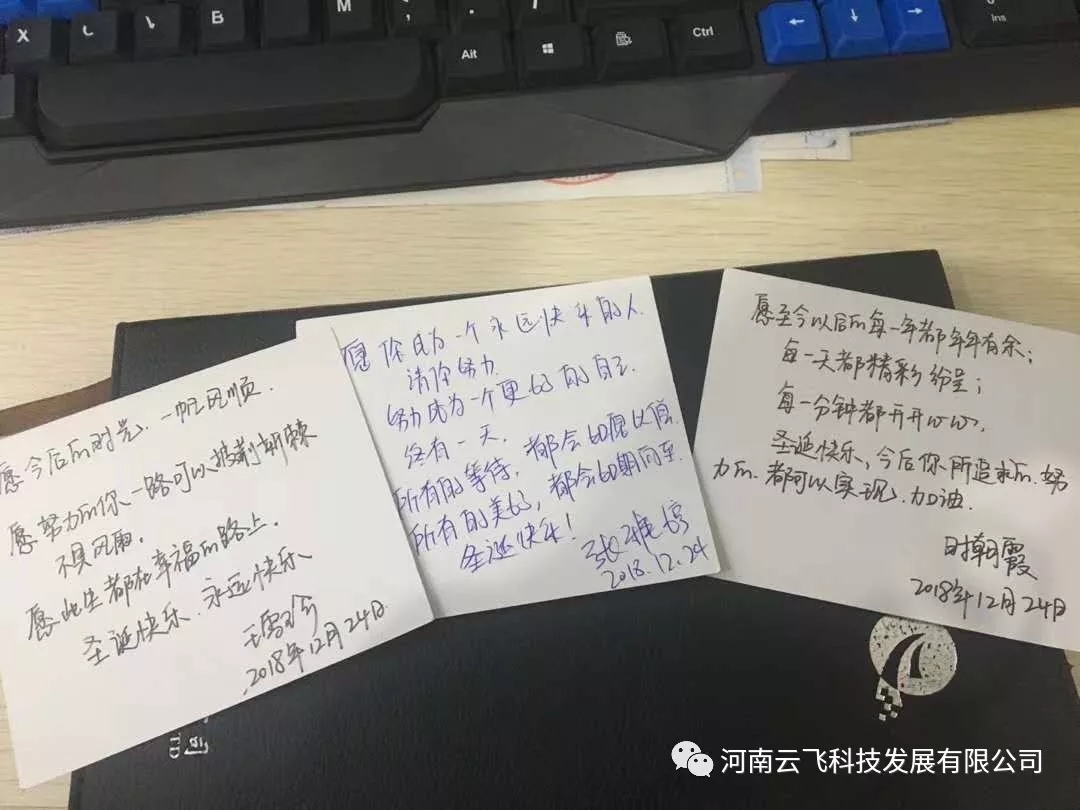 X
B
M
Alt
Ctrl
Ins
愿今后的时光,一帆风顺.
愿努力的你一路可以披荆斩棘
不畏风雨.
愿此生都在幸福的路上.
圣诞快乐.永远快乐
2018年12月24日.
愿你成为一个永远快乐的人.
请你努力.
努力成为一个更好的自己.
终有一天.
所有的等待,都会如愿以偿.
所有的美好,都会如期而至.
圣诞快乐!
张雅婷
2018.12.24
愿至今以后的每一年都年年有余;
每一天都精彩纷呈;
每一分钟都开开心心,
圣诞快乐,今后你所追求的.努
力的.都可以实现.加油.
时朝霞
2018年12月24日
TD
河南云飞科技发展有限公司